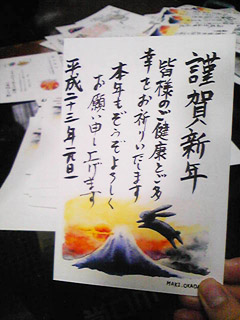 謹賀新年
皆様のご健康とご多
幸をお祈りいたします
本年もどうぞよろしく
お願い申し上げます
平成二十三年元旦
MAKI.OKADA